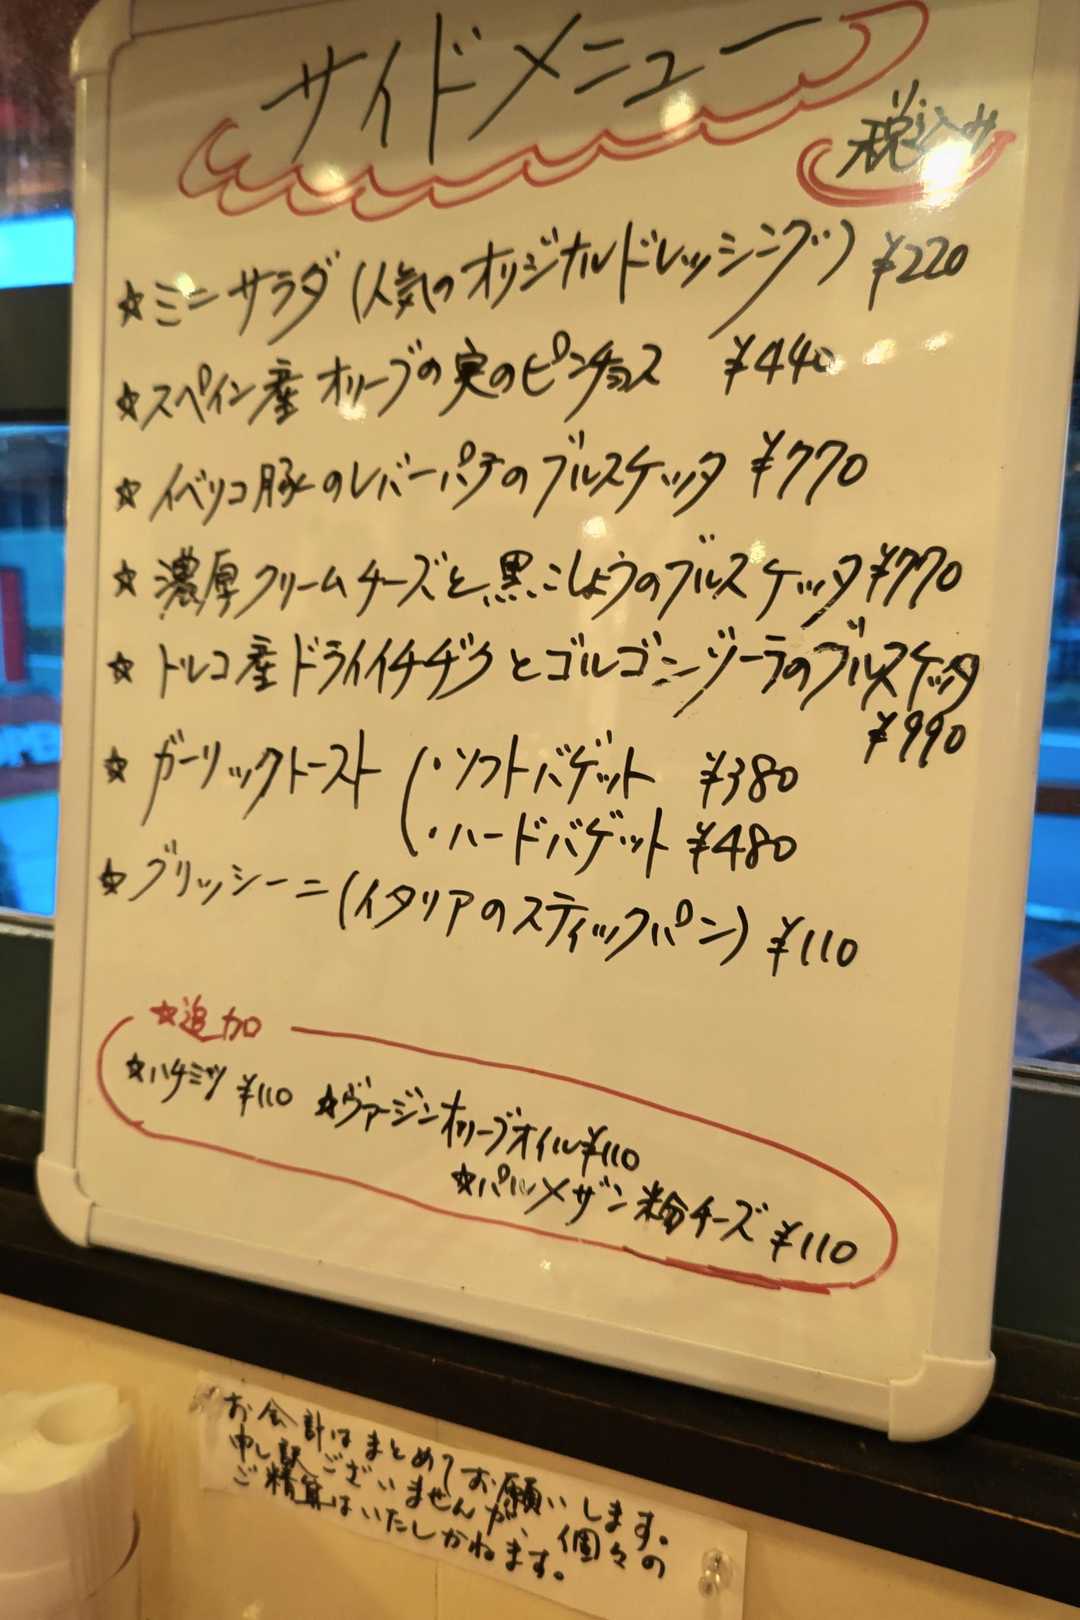 サイドメニュー
税込み
☆ミニサラダ(人気のオリジナルドレッシング) ¥220
☆スペイン産オリーブの実のピンチョス ¥440
☆イベリコ豚のレバーパテのブルスケッタ ¥770
☆濃厚クリームチーズと黒こしょうのブルスケッタ¥770
☆トルコ産ドライイチヂクとゴルゴンゾーラのブルスケッタ
¥990
☆ガーリックトースト(・ソフトバゲット ¥380
・ハードバゲット ¥480
☆グリッシーニ(イタリアのスティックパン) ¥110
☆追加
☆ハチミツ ¥110 ☆ヴァージンオリーブオイル¥110
☆パルメザン粉チーズ ¥110
お会計はまとめてお願いします。
申し訳ございませんが、個々の
ご精算はいたしかねます。